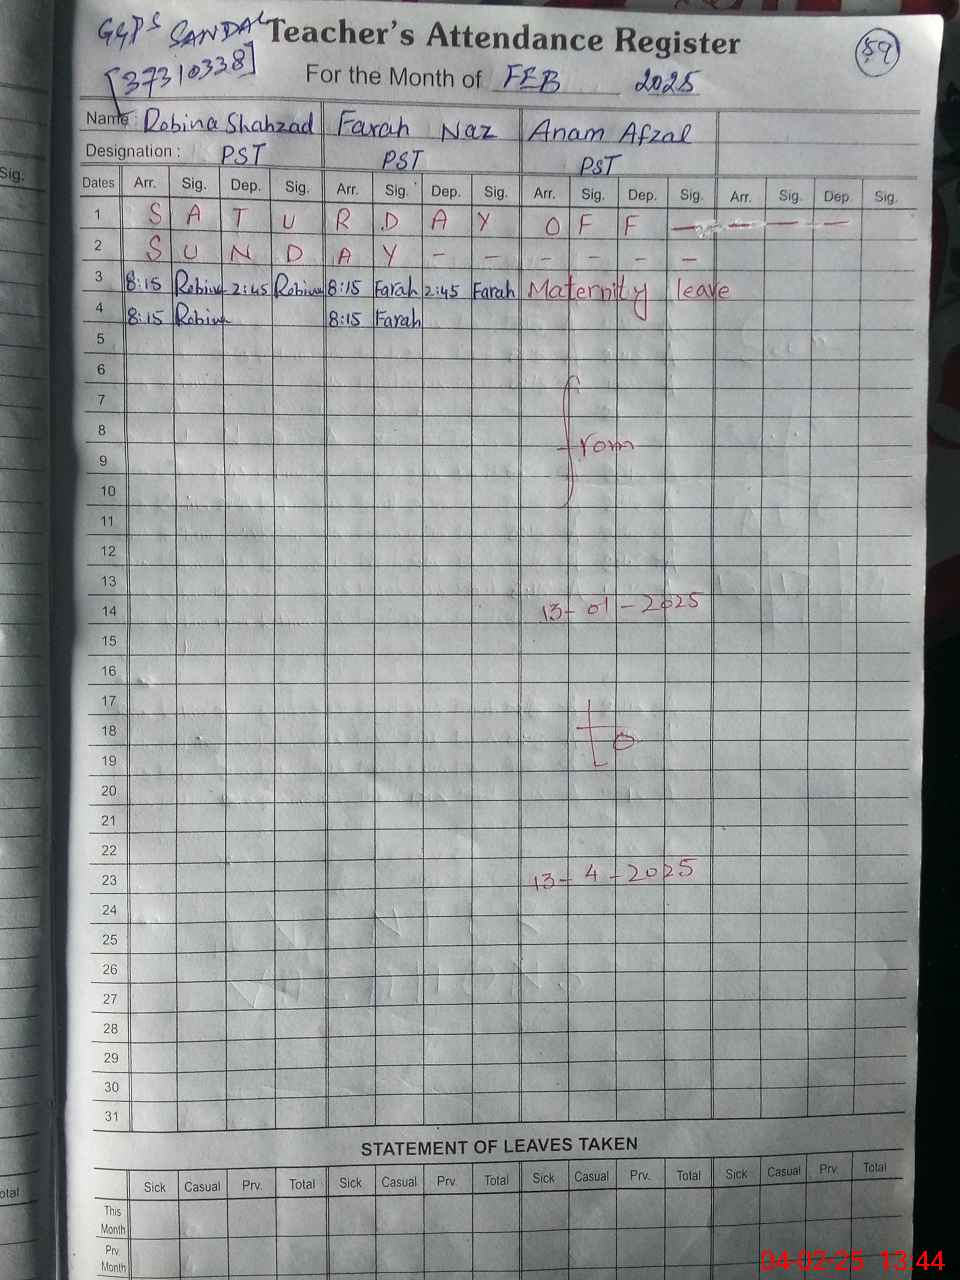 GGPS SANDAL Teacher's Attendance Register 59
[37310338] For the Month of FEB 2025
Name : Robina Shahzad Farah Naz Anam Afzal
Designation : PST PST PST
Sig.
Dates Arr. Sig. Dep. Sig. Arr. Sig. Dep. Sig. Arr. Sig. Dep. Sig. Arr. Sig. Dep. Sig.
1 S A T U R D A Y O F F — — — —
2 S U N D A Y - - - - - -
3 8:15 Robina 2:45 Robina 8:15 Farah 2:45 Farah Maternity leave
4 8:15 Robina 8:15 Farah
5
6
7
8
9 from
10
11
12
13
14 13-01-2025
15
16
17
18 to
19
20
21
22
23 13-4-2025
24
25
26
27
28
29
30
31
STATEMENT OF LEAVES TAKEN
Sick Casual Prv. Total Sick Casual Prv. Total Sick Casual Prv. Total Sick Casual Prv. Total
otal
This
Month
Prv.
Month
04-02-25 13:44